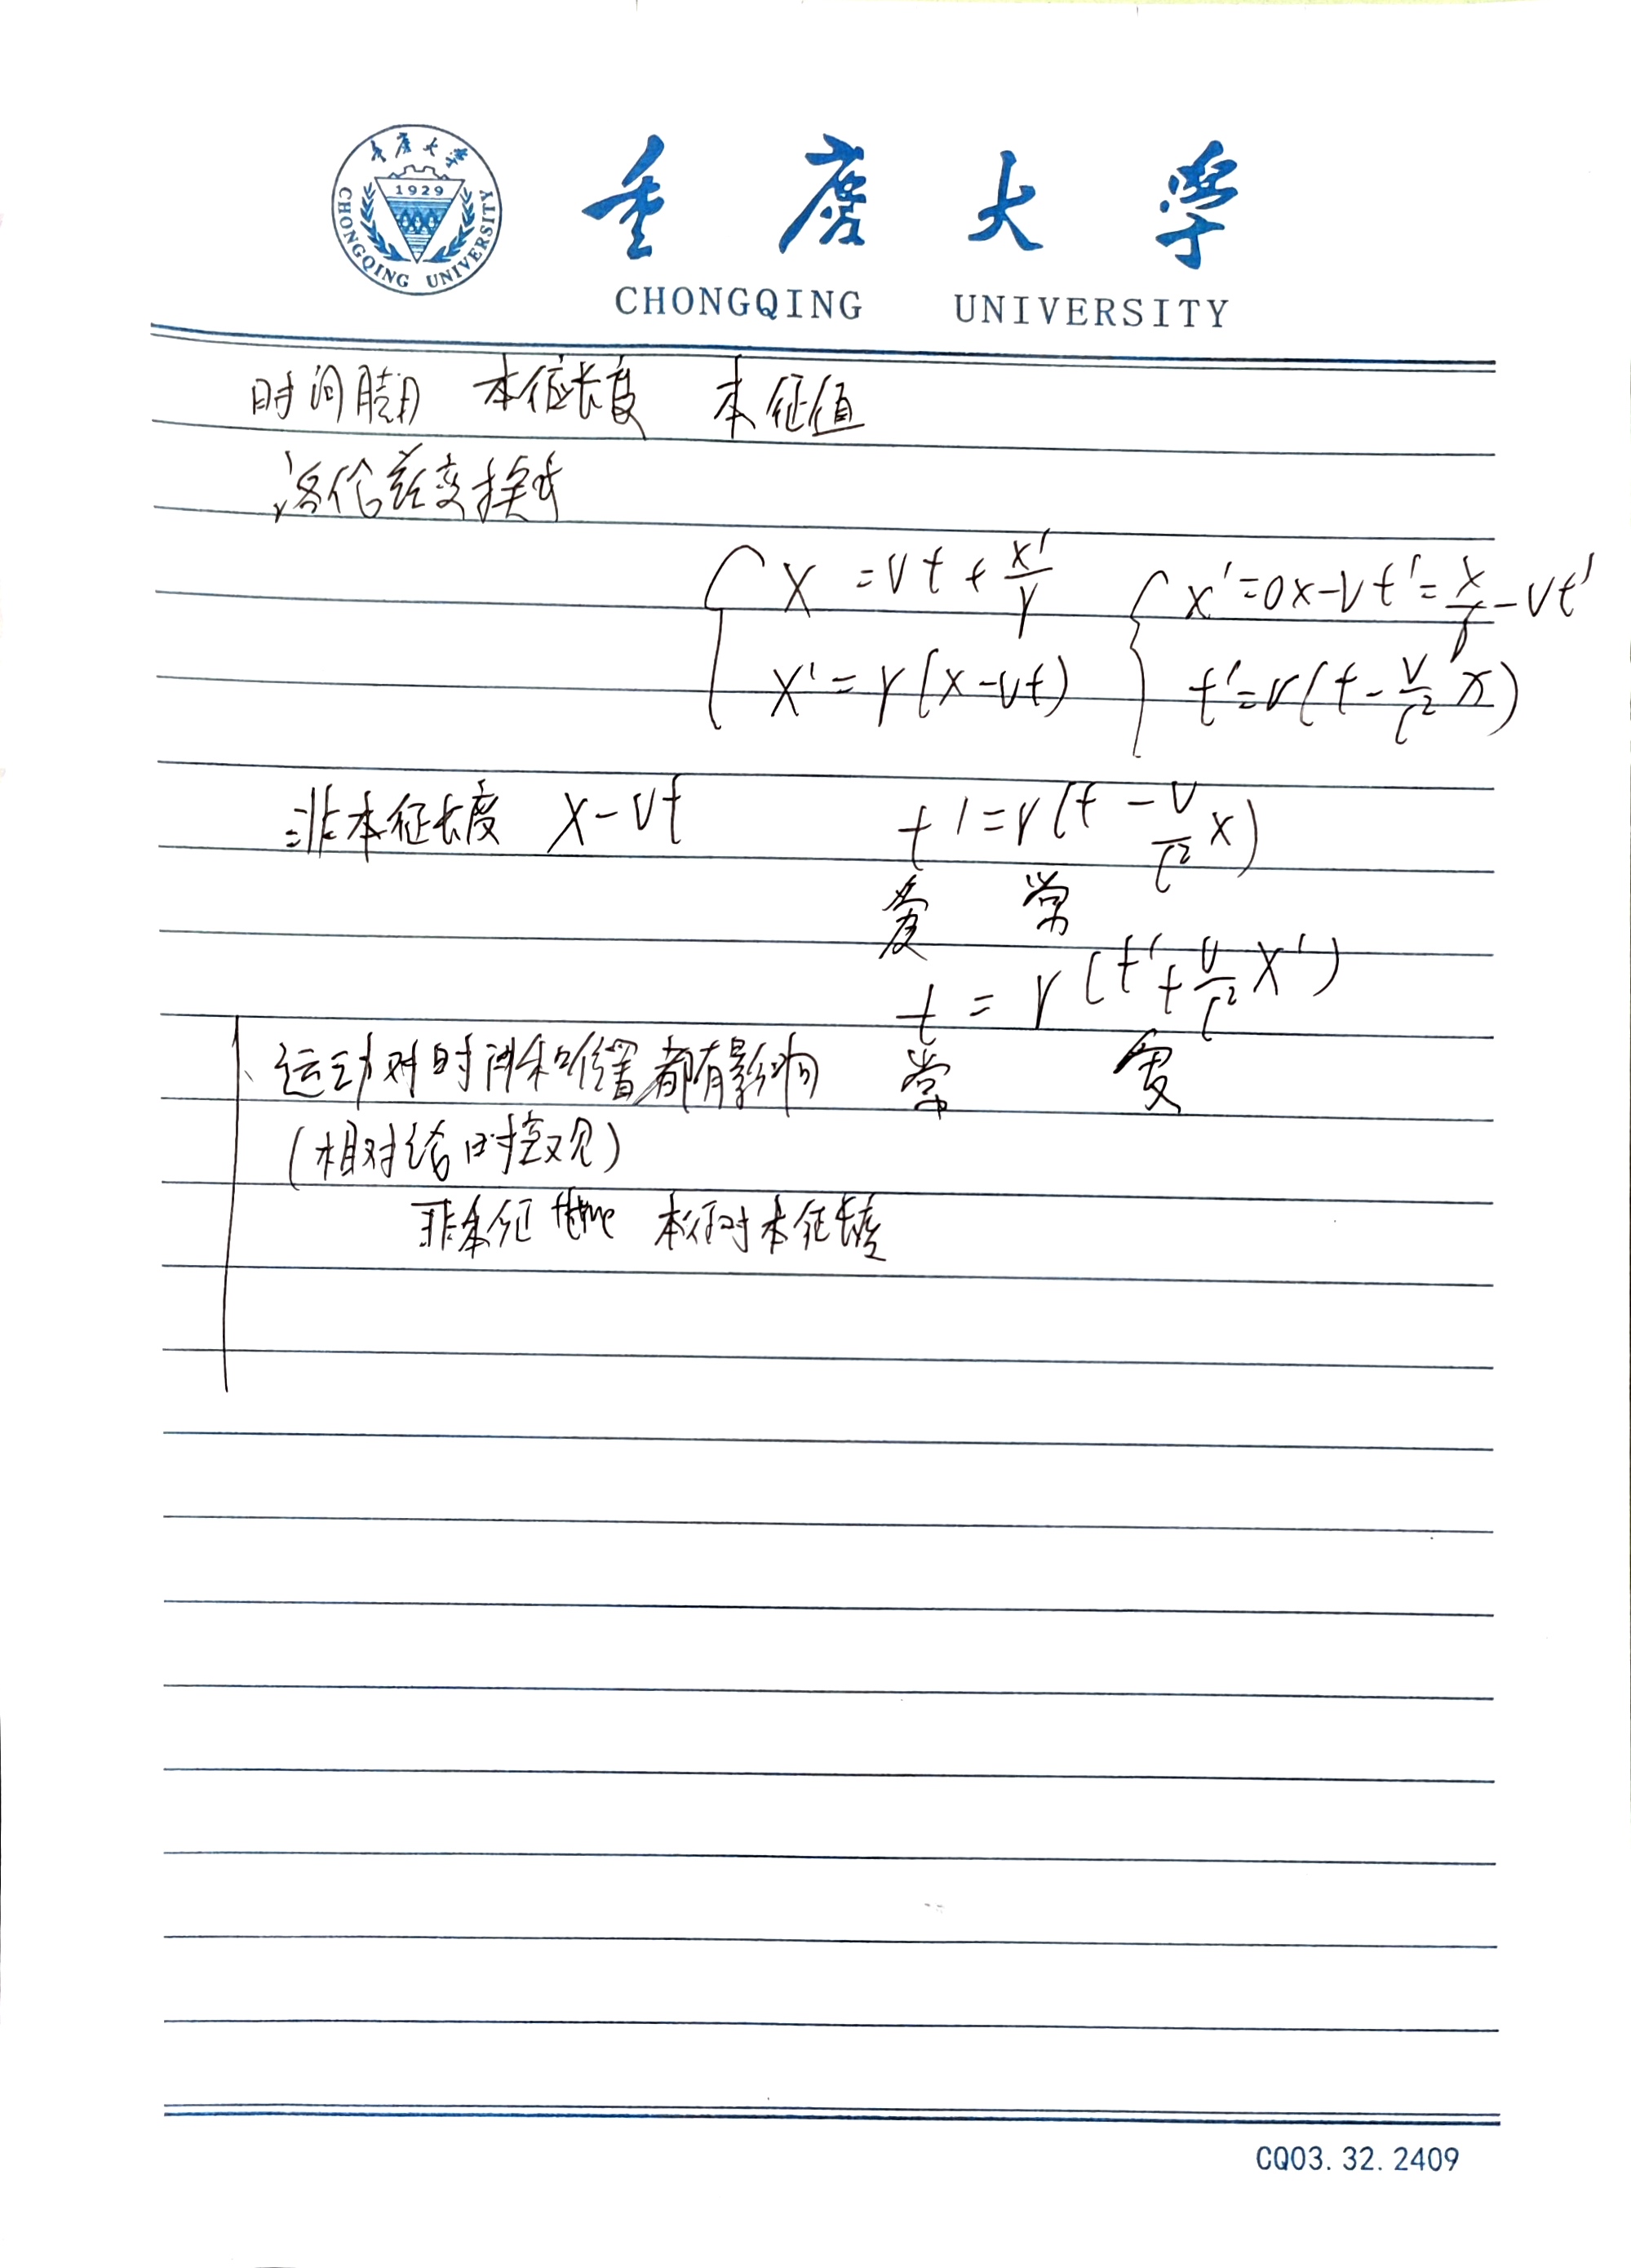 重庆大学
1929
CHONGQING UNIVERSITY
重庆大学
CHONGQING UNIVERSITY
时间 本征长度 本征值
洛伦兹变换式
x = vt + x'/γ
x' = γ(x-vt)
x' = 0x-vt' = x/γ - vt'
t' = γ(t - v/c² x)
非本征长度 x-vt
t' = γ(t - v/c² x)
变 常
t = γ(t' + v/c² x')
常 变
运动对时间和位置都有影响
(相对论时空观)
非本征 time 本征时 本征长度
CQ03.32.2409